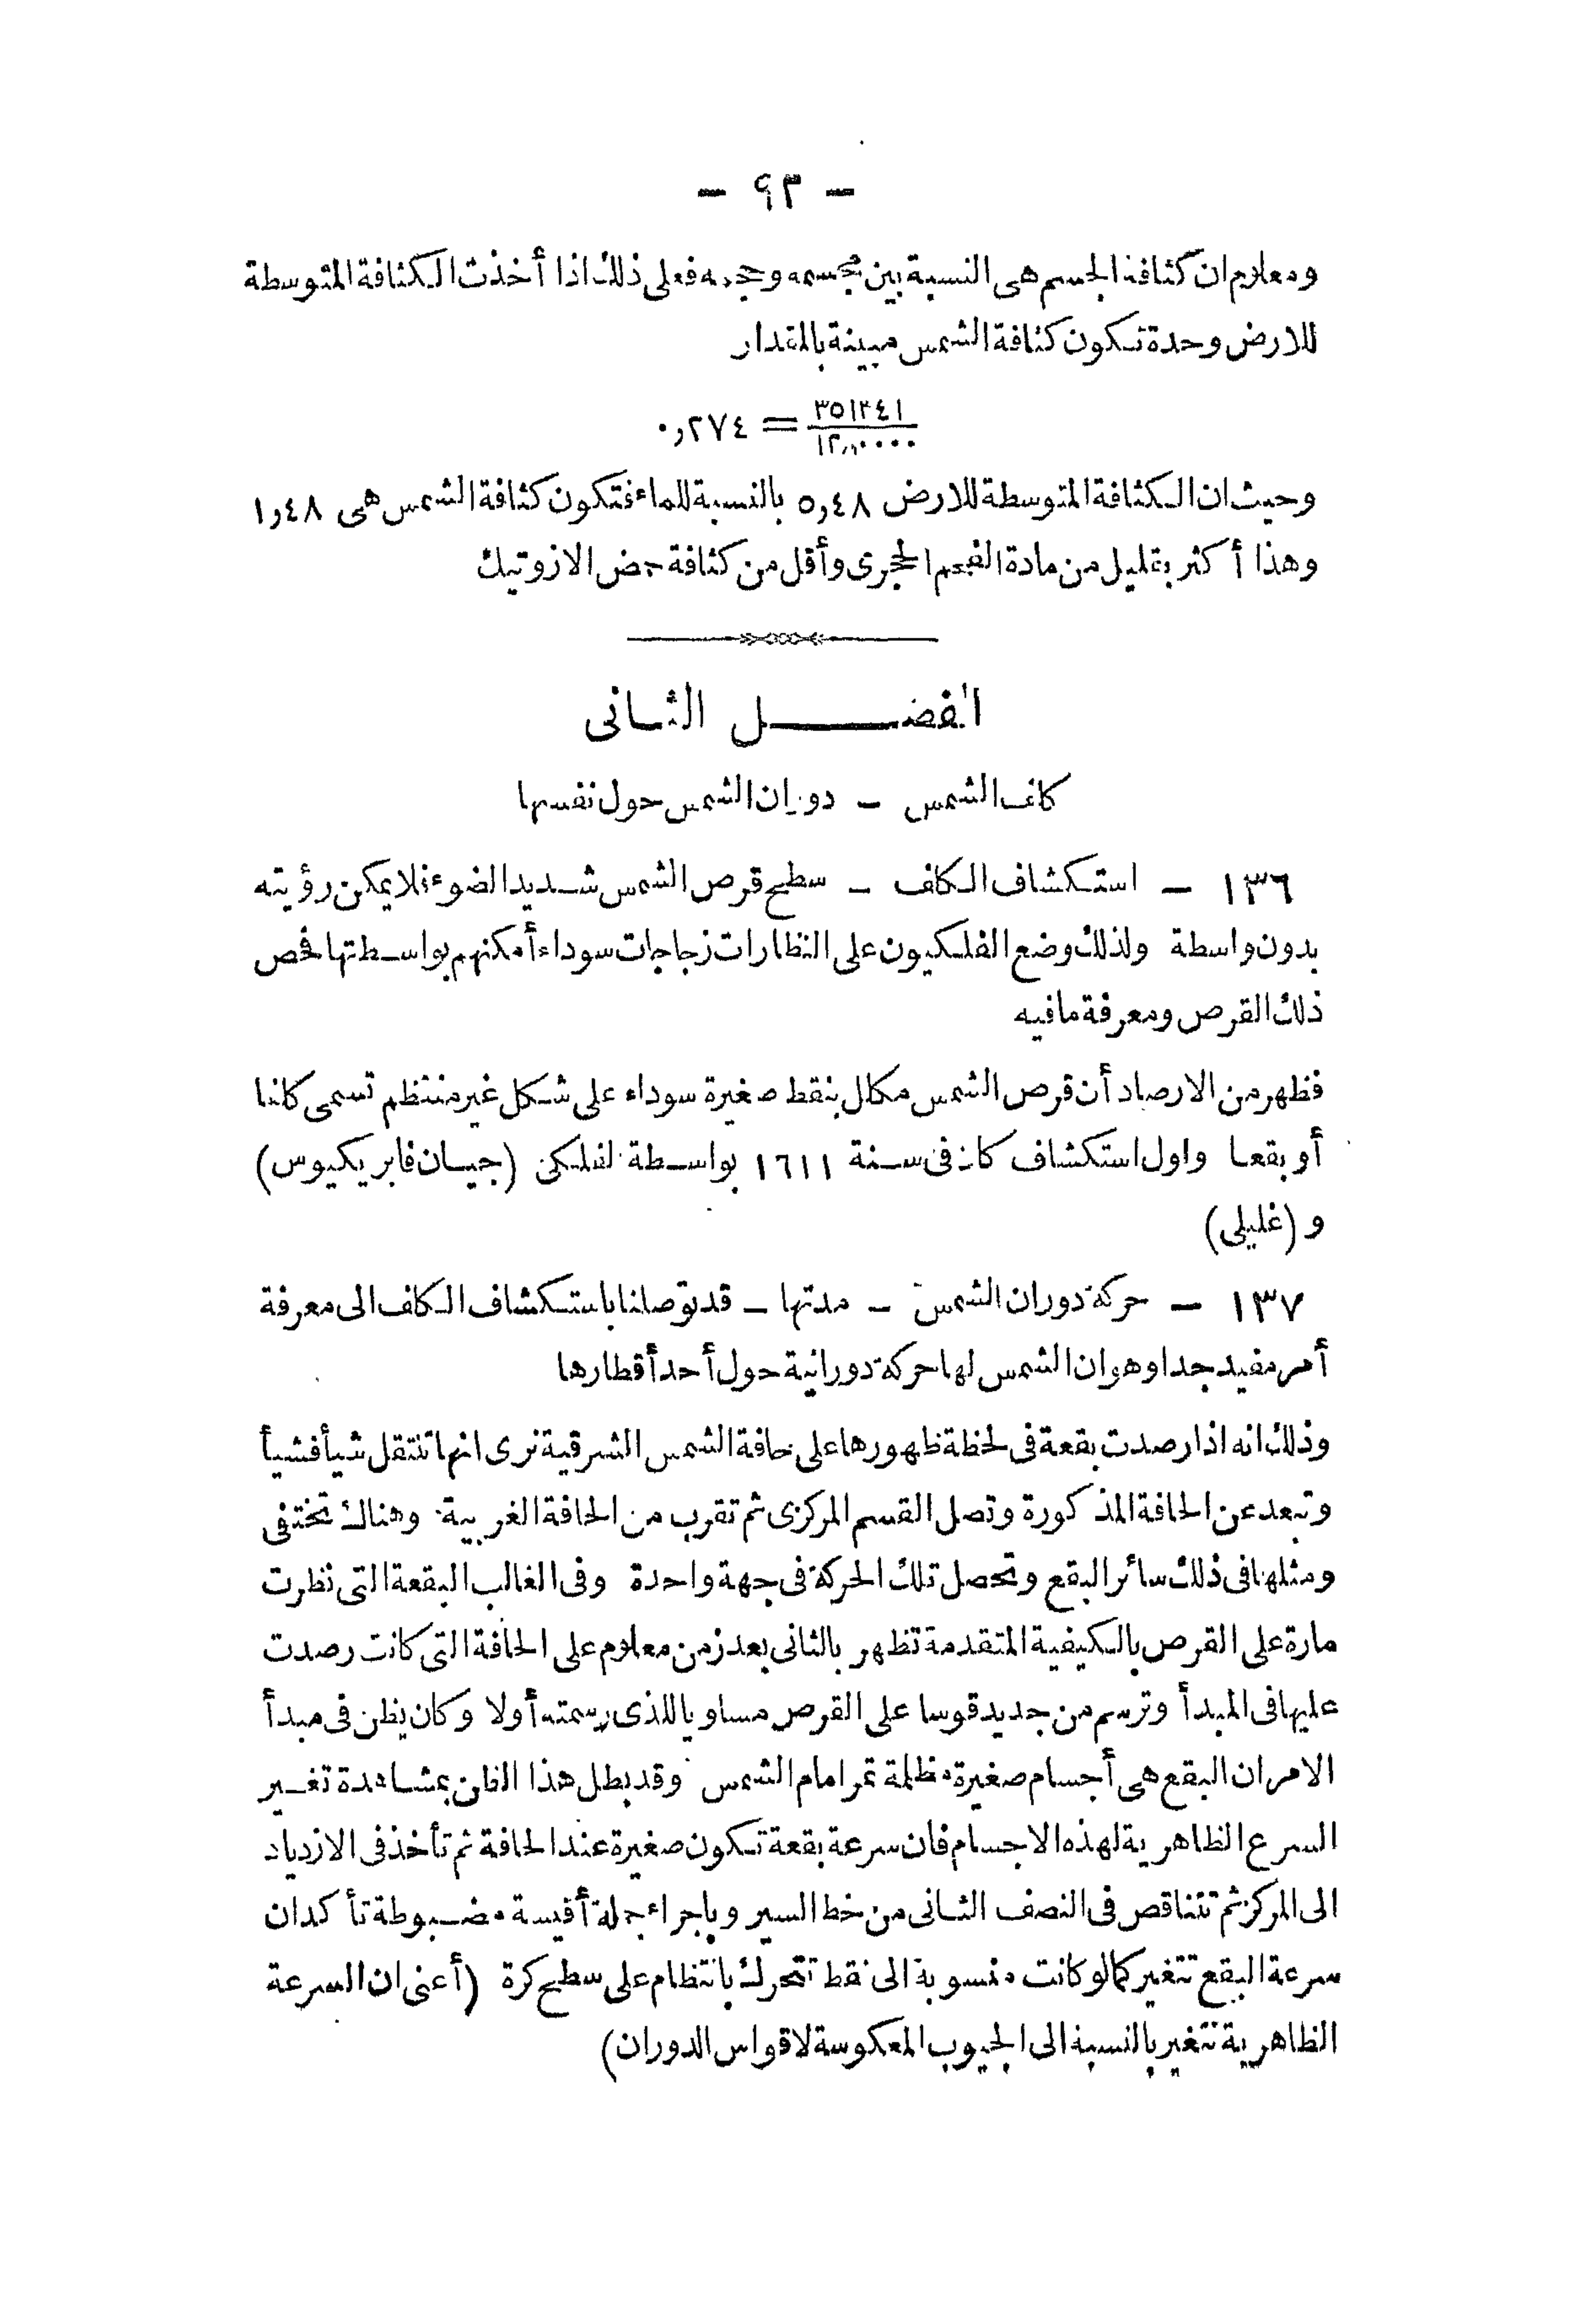 - ٩٣ -
ومعلوم ان كثافة الجسم هى النسبة بين مجسمه وحجمه فعلى ذلك اذا أخذت الكثافة المتوسطة
للارض وحدة تكون كثافة الشمس مبينة بالمقدار
٣٥١٣٤١ / ١٢٨٠٠٠٠ = ٠,٢٧٤
وحيث ان الكثافة المتوسطة للارض ٥,٤٨ بالنسبة للماء فتكون كثافة الشمس هى ١,٤٨
وهذا أكثر بقليل من مادة الفحم الحجرى وأقل من كثافة حمض الازوتيك
الفصل الثانى
كلف الشمس - دوران الشمس حول نفسها
١٣٦ - استكشاف الكلف - سطح قرص الشمس شديد الضوء فلا يمكن رؤيته
بدون واسطة ولذلك وضع الفلكيون على النظارات زجاجات سوداء أمكنهم بواسطتها فحص
ذلك القرص ومعرفة ما فيه
فظهر من الارصاد أن قرص الشمس مكلل بنقط صغيرة سوداء على شكل غير منتظم تسمى كلفا
أو بقعا واول استكشاف كان فى سنة ١٦١١ بواسطة الفلكى (جيان فابريكيوس)
و (غليلى)
١٣٧ - حركة دوران الشمس - مدتها - قد توصلنا باستكشاف الكلف الى معرفة
أمر مفيد جدا وهو ان الشمس لها حركة دورانية حول أحد أقطارها
وذلك انه اذا رصدت بقعة فى لحظة ظهورها على حافة الشمس الشرقية نرى انها تنتقل شيأ فشيأ
وتبعد عن الحافة المذكورة وتصل القسم المركزى ثم تقرب من الحافة الغربية وهناك تختفى
ومثلها فى ذلك سائر البقع وتحصل تلك الحركة فى جهة واحدة وفى الغالب البقعة التى نظرت
مارة على القرص بالكيفية المتقدمة تظهر بالثانى بعد زمن معلوم على الحافة التى كانت رصدت
عليها فى المبدأ وترسم من جديد قوسا على القرص مساويا للذى رسمته أولا وكان يظن فى مبدأ
الامر ان البقع هى أجسام صغيرة مظلمة تمر امام الشمس وقد بطل هذا الظن بمشاهدة تغير
السرع الظاهرية لهذه الاجسام فان سرعة بقعة تكون صغيرة عند الحافة ثم تأخذ فى الازدياد
الى المركز ثم تتناقص فى النصف الثانى من خط السير وباجراء جملة أقيسة مضبوطة تأكد ان
سرعة البقع تتغير كما لو كانت منسوبة الى نقط تتحرك بانتظام على سطح كرة (أعنى ان السرعة
الظاهرية تتغير بالنسبة الى الجيوب المعكوسة لاقواس الدوران)